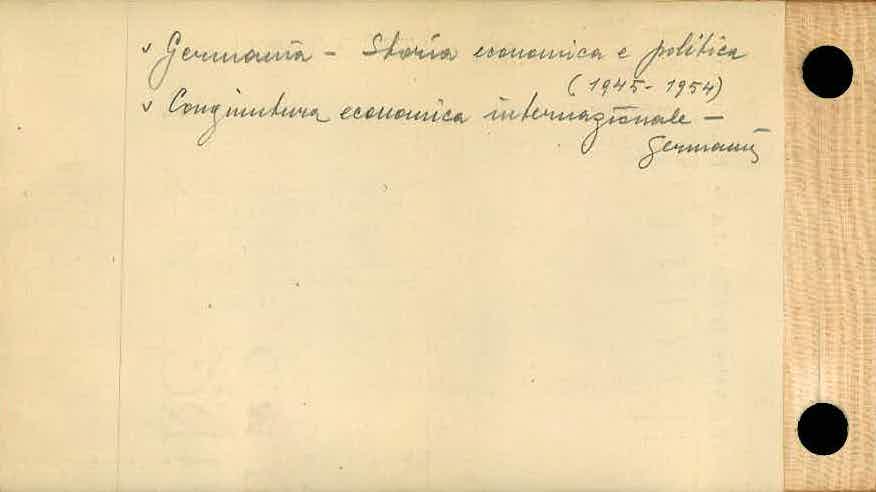 v Germania - Storia economica e politica
(1945-1954)
v Congiuntura economica internazionale -
Germania